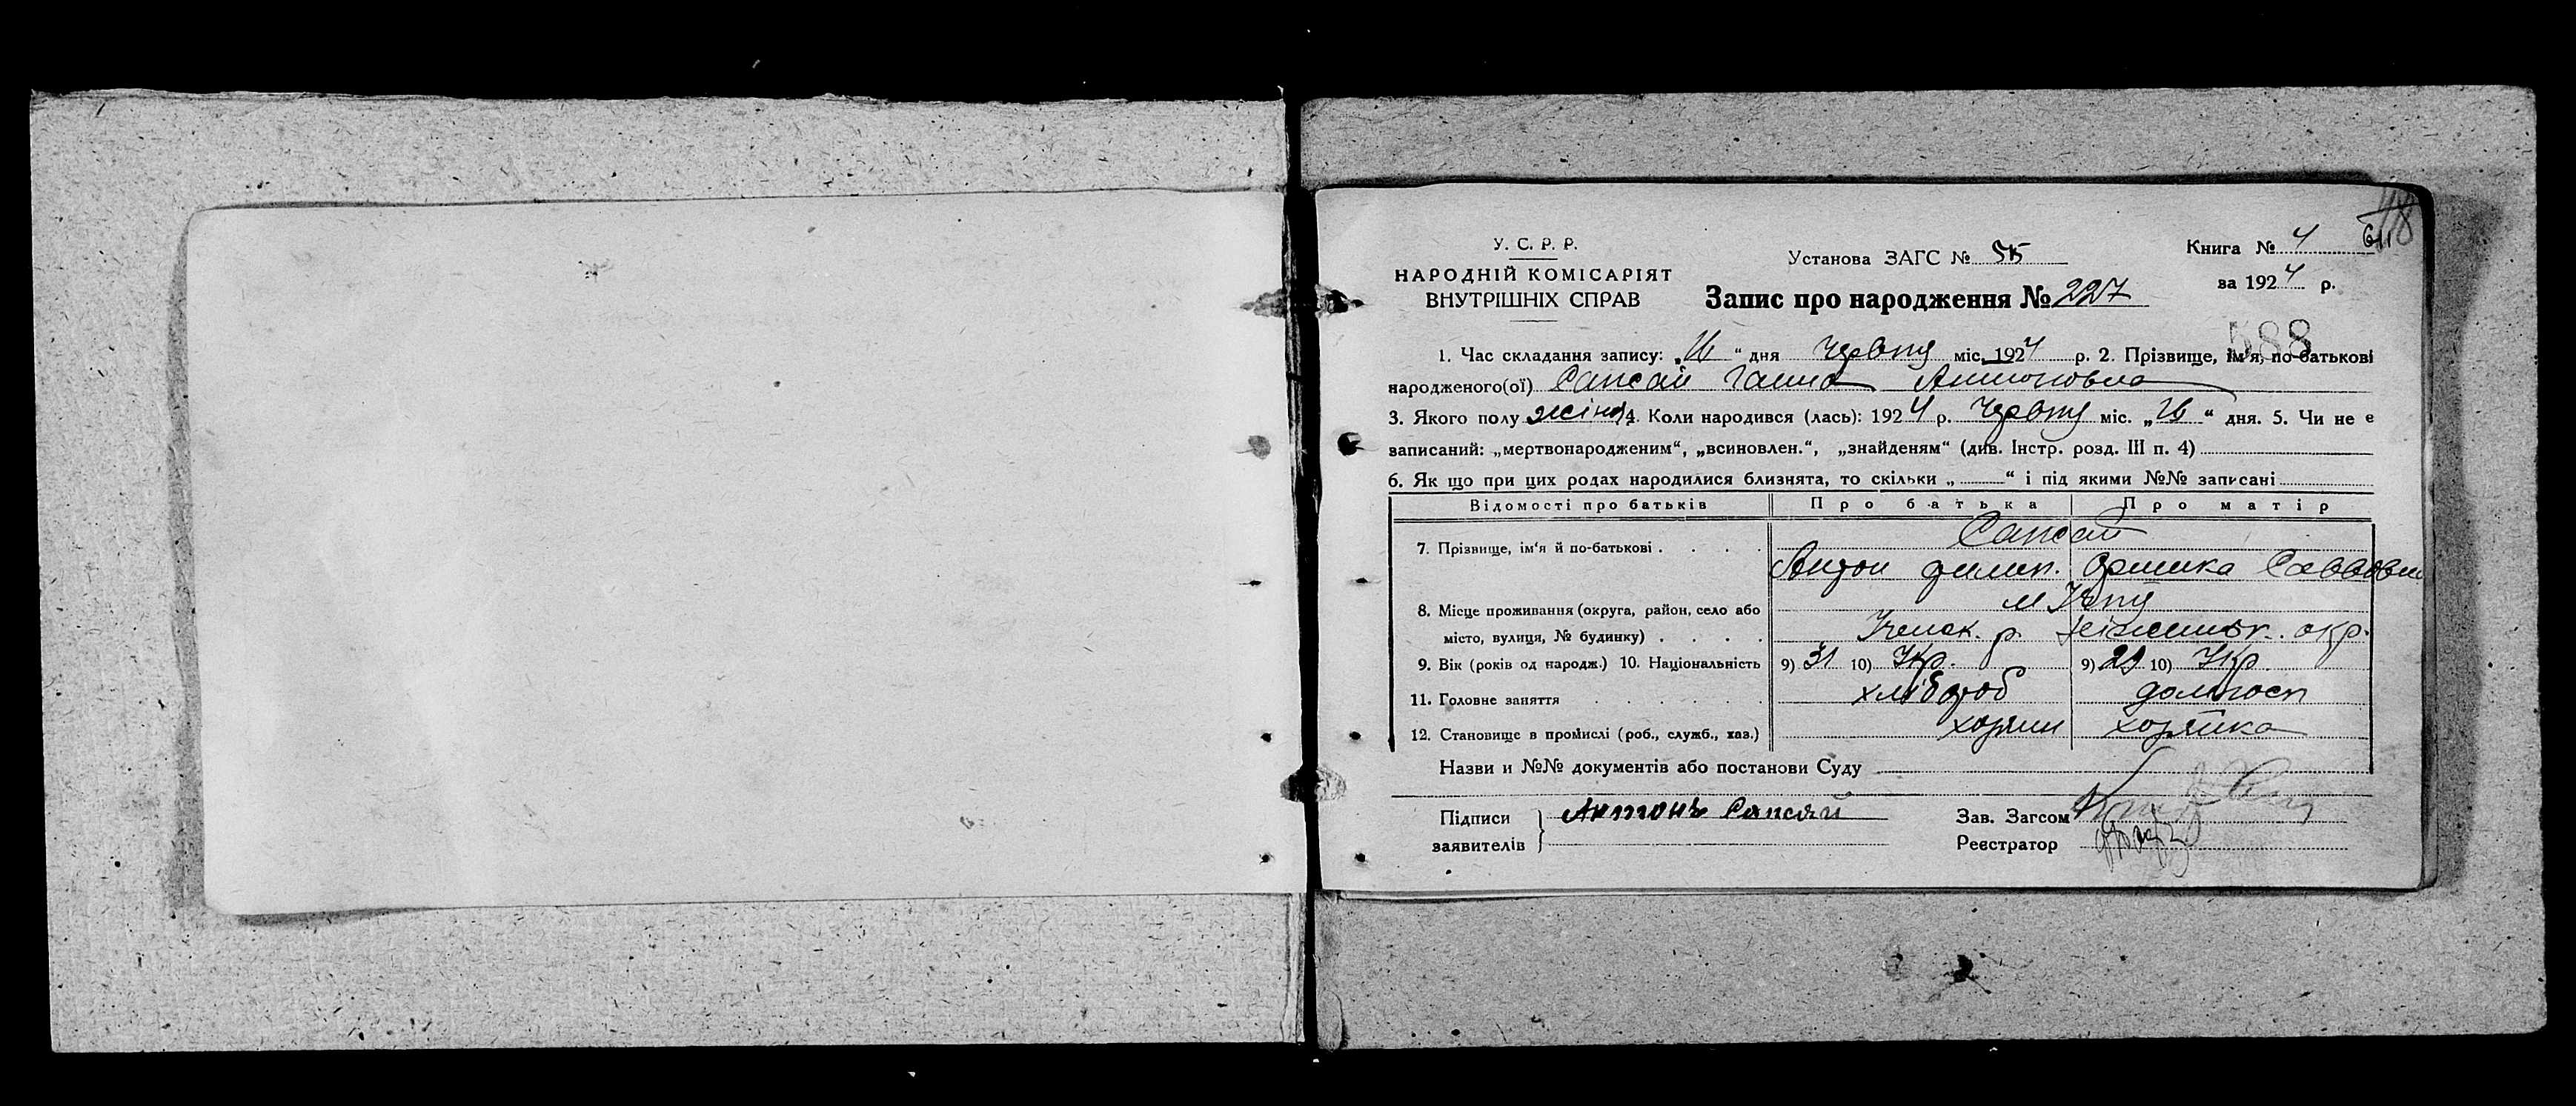 У. С. Р. Р.
НАРОДНІЙ КОМІСАРІЯТ
ВНУТРІШНІХ СПРАВ
Установа ЗАГС №
Запис про народження № 227
Книга № 4
за 1924 р.
588
1. Час складання запису: „ “ дня Червня міс. 1924 р. 2. Прізвище, ім'я, по-батькові
народженого(ої) Сапсай Ганна Антоновна
3. Якого полу жіноч 4. Коли народився (лась): 1924 р. Червня міс. „ “ дня. 5. Чи не є
записаний: „мертвонародженим“, „всиновлен.“, „знайденям“ (див. Інстр. розд. III п. 4)
6. Як що при цих родах народилися близнята, то скільки „ “ і під якими №№ записані
Відомості про батьків Про батька Про матір
7. Прізвище, ім'я й по-батькові . . . . Сапсай
Антон Филип. Оришка Саввовна
8. Місце проживання (округа, район, село або м Ічня
місто, вулиця, № будинку) . . . . Іченск. р. Ніженськ. окр.
9. Вік (років од народж.) 10. Національність 9) 31 10) Укр. 9) 29 10) Укр.
11. Головне заняття . . . . . . хлібороб домгосп
12. Становище в промислі (роб., служб., хаз.) хозяин хозяйка
Назви и №№ документів або постанови Суду
Підписи
заявителів
Антонъ Сапсай
Зав. Загсом
Реєстратор